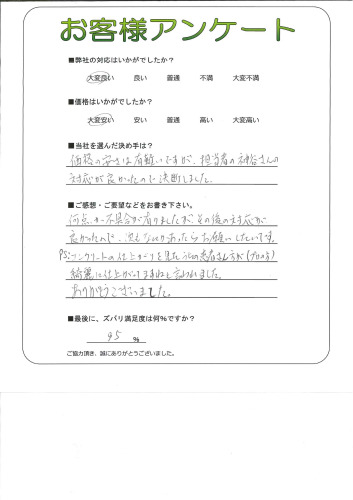 お客様アンケート
■弊社の対応はいかがでしたか？
大変良い 良い 普通 不満 大変不満
■価格はいかがでしたか？
大変安い 安い 普通 高い 大変高い
■当社を選んだ決め手は？
価格の安さは有難いですが、担当者の神谷さんの
対応が良かったので決断しました。
■ご感想・ご要望などをお書き下さい。
何点か不具合が有りましたが、その後の対応が
良かったので、次もなにかあったらお願いしたいです。
PS:コンクリートの仕上がりを見たうちの患者さん方が(プロの方)
綺麗に仕上がってますねと言われました。
ありがとうございました。
■最後に、ズバリ満足度は何%ですか？
95 %
ご協力頂き、誠にありがとうございました。